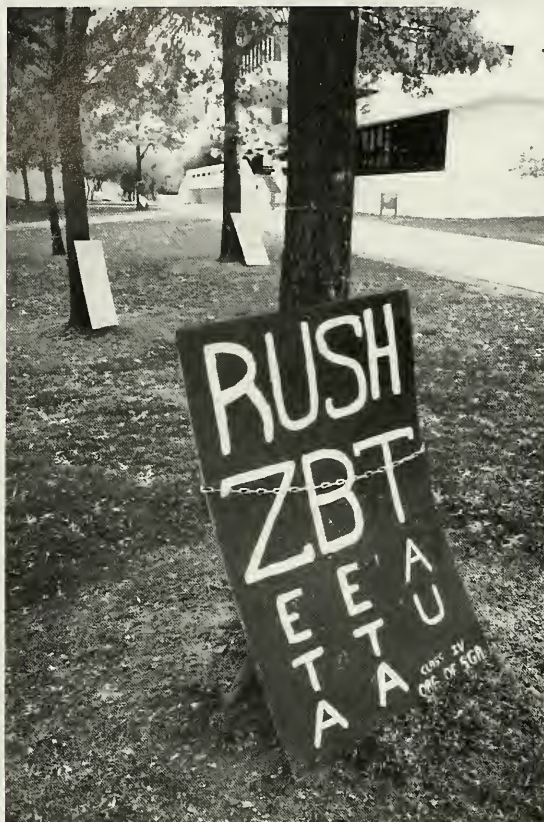 RUSH
ZBT
ETA
ETA
AU
CLASS IV
ORG. OF SGA